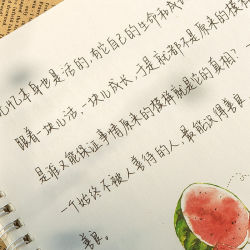 记忆本身也是活的,有它自己的生命和成
跟着一块儿活,一块儿成长,于是就都不是原来的模
是谁又能保证事情原来的模样就是它的真相?
一个始终不被人善待的人,最能识得善良,
善良。